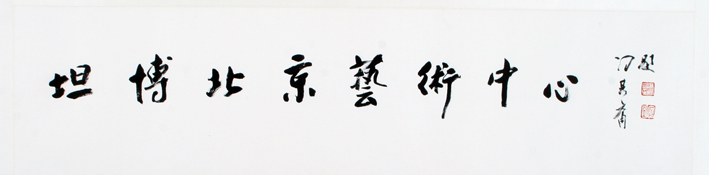 坦博北京藝術中心